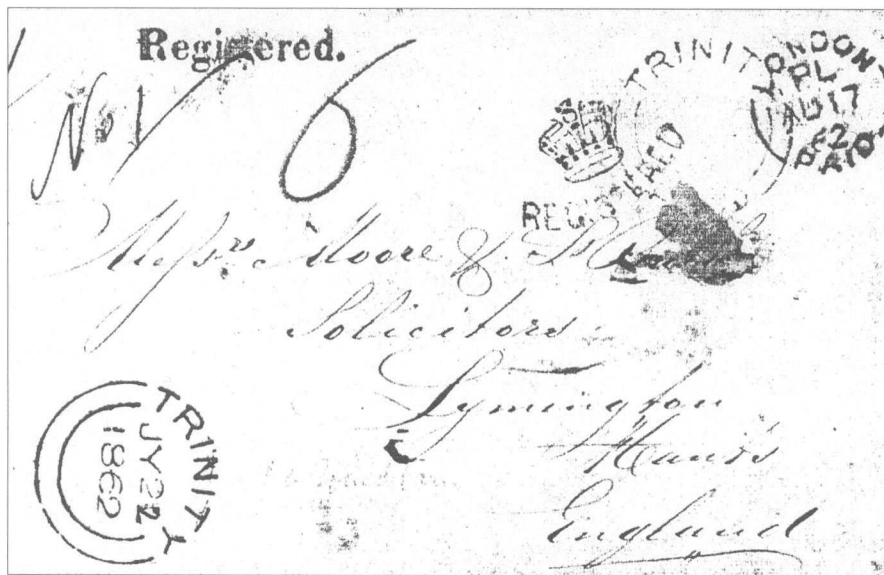 Registered.
No 1
6
TRINITY
LONDON
PL
AU 17
62
PAID
REGISTERED
Messrs Moore &
Solicitors
Lymington
Hants
England
TRINITY
JY 22
1862